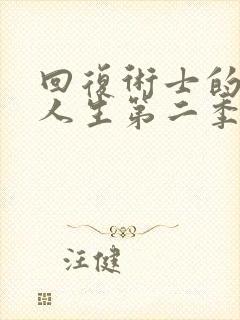 回復術士的
人生第二季
汪健